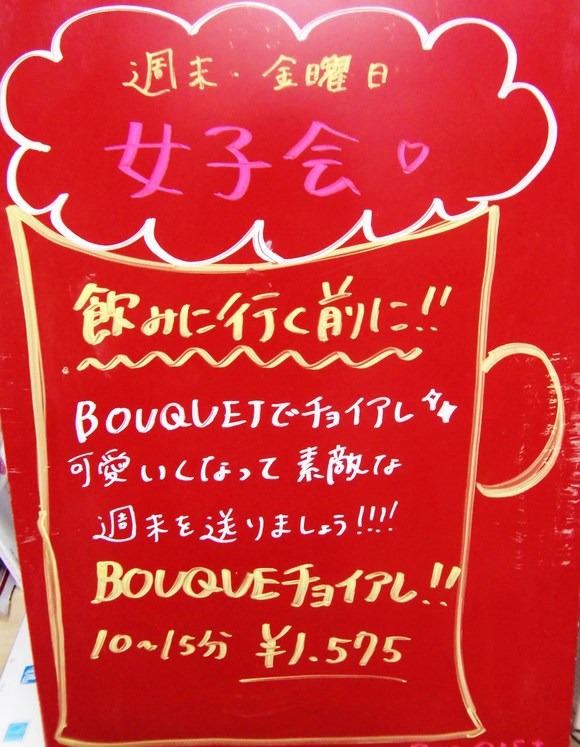 週末・金曜日
女子会♡
飲みに行く前に!!
BOUQUETでチョイアレ
可愛いくなって素敵な
週末を送りましょう!!!!
BOUQUEチョイアレ!!
10~15分 ¥1.575